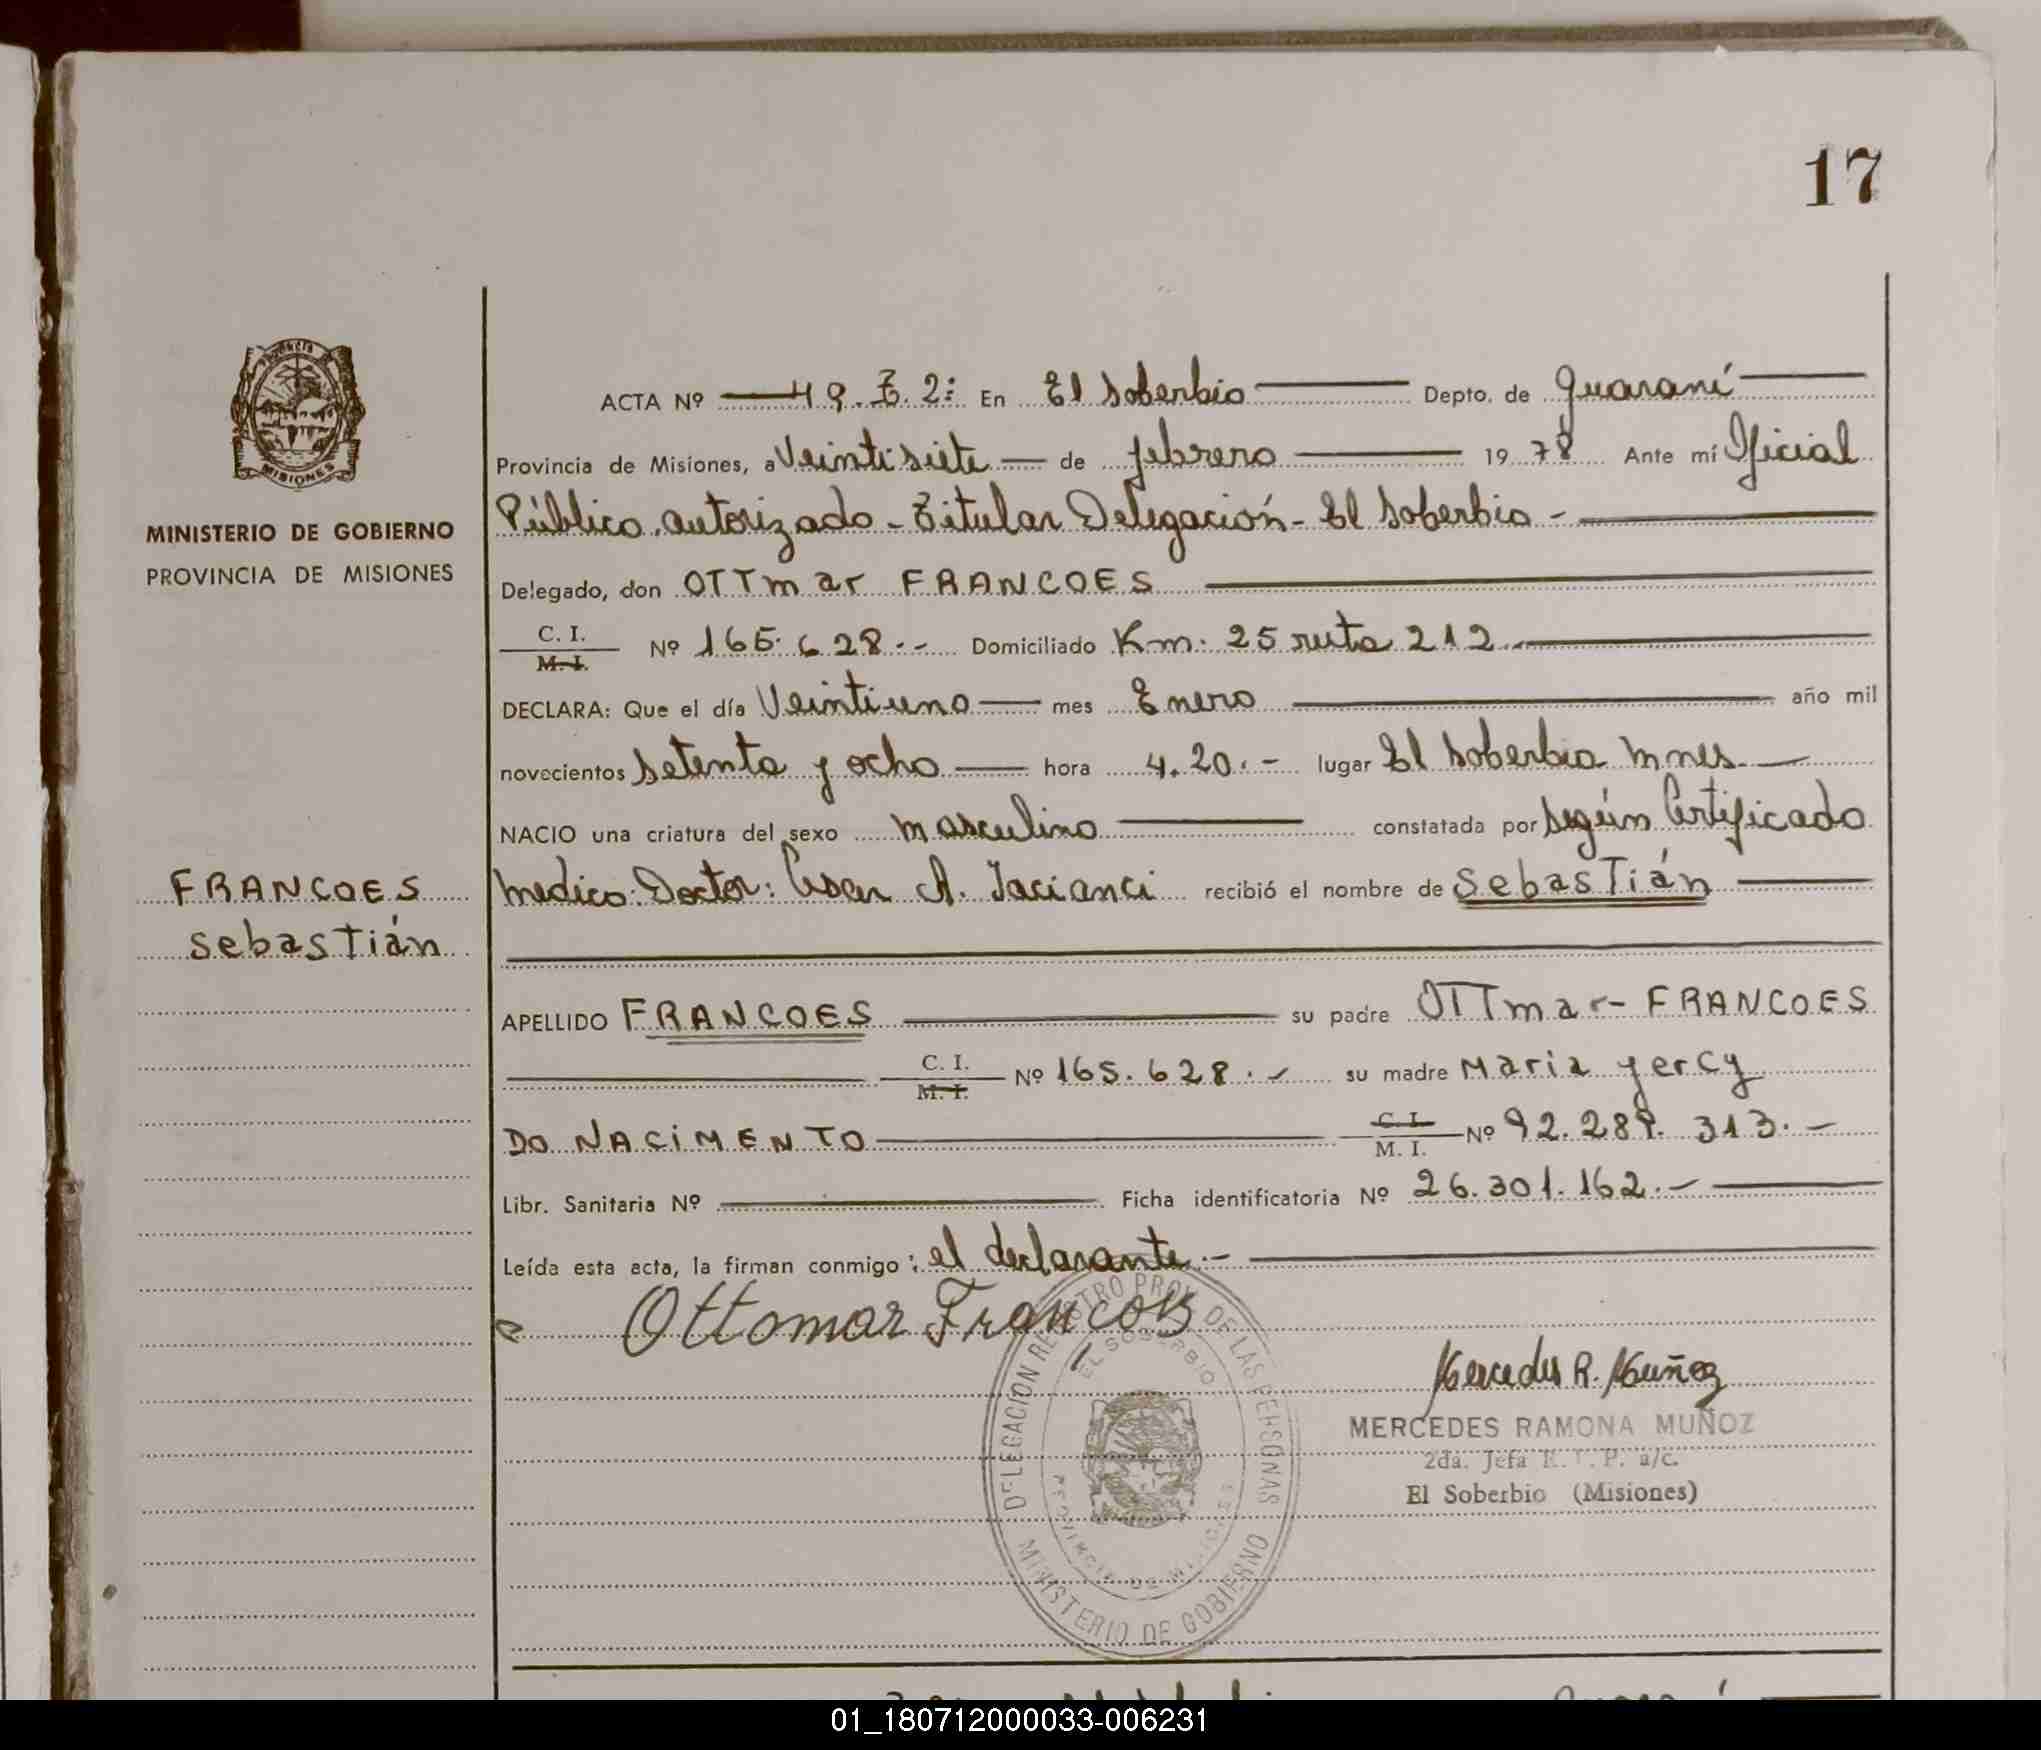 17
Provincia de
MISIONES
MINISTERIO DE GOBIERNO
PROVINCIA DE MISIONES
FRANCOES
Sebastián
ACTA Nº 49. T. 2: En El Soberbio Depto. de Guaraní
Provincia de Misiones, a Veintisiete de febrero 1978 Ante mí Oficial
Público autorizado - Titular Delegación - El Soberbio -
Delegado, don OTTmar FRANCOES
C. I.
M. I. Nº 165.628.- Domiciliado Km. 25 ruta 212.
DECLARA: Que el día Veintiuno mes Enero año mil
novecientos setenta y ocho hora 4.20.- lugar El Soberbio Mnes.
NACIO una criatura del sexo masculino constatada por según Certificado
medico: Doctor: Cesar A. Jacianci recibió el nombre de Sebastián
APELLIDO FRANCOES su padre OTTmar - FRANCOES
C. I.
M. I. Nº 165.628.- su madre Maria yercy
DO NACIMENTO C. I.
M. I. Nº 92.289.313.-
Libr. Sanitaria Nº Ficha identificatoria Nº 26.301.162.-
Leída esta acta, la firman conmigo: el declarante.-
Ottomar Francois
DELEGACION REGISTRO PROV. DE LAS PERSONAS
EL SOBERBIO
PROVINCIA DE MISIONES
MINISTERIO DE GOBIERNO
Mercedes R. Muñoz
MERCEDES RAMONA MUÑOZ
2da. Jefa R. P. a/c.
El Soberbio (Misiones)
01_180712000033-006231